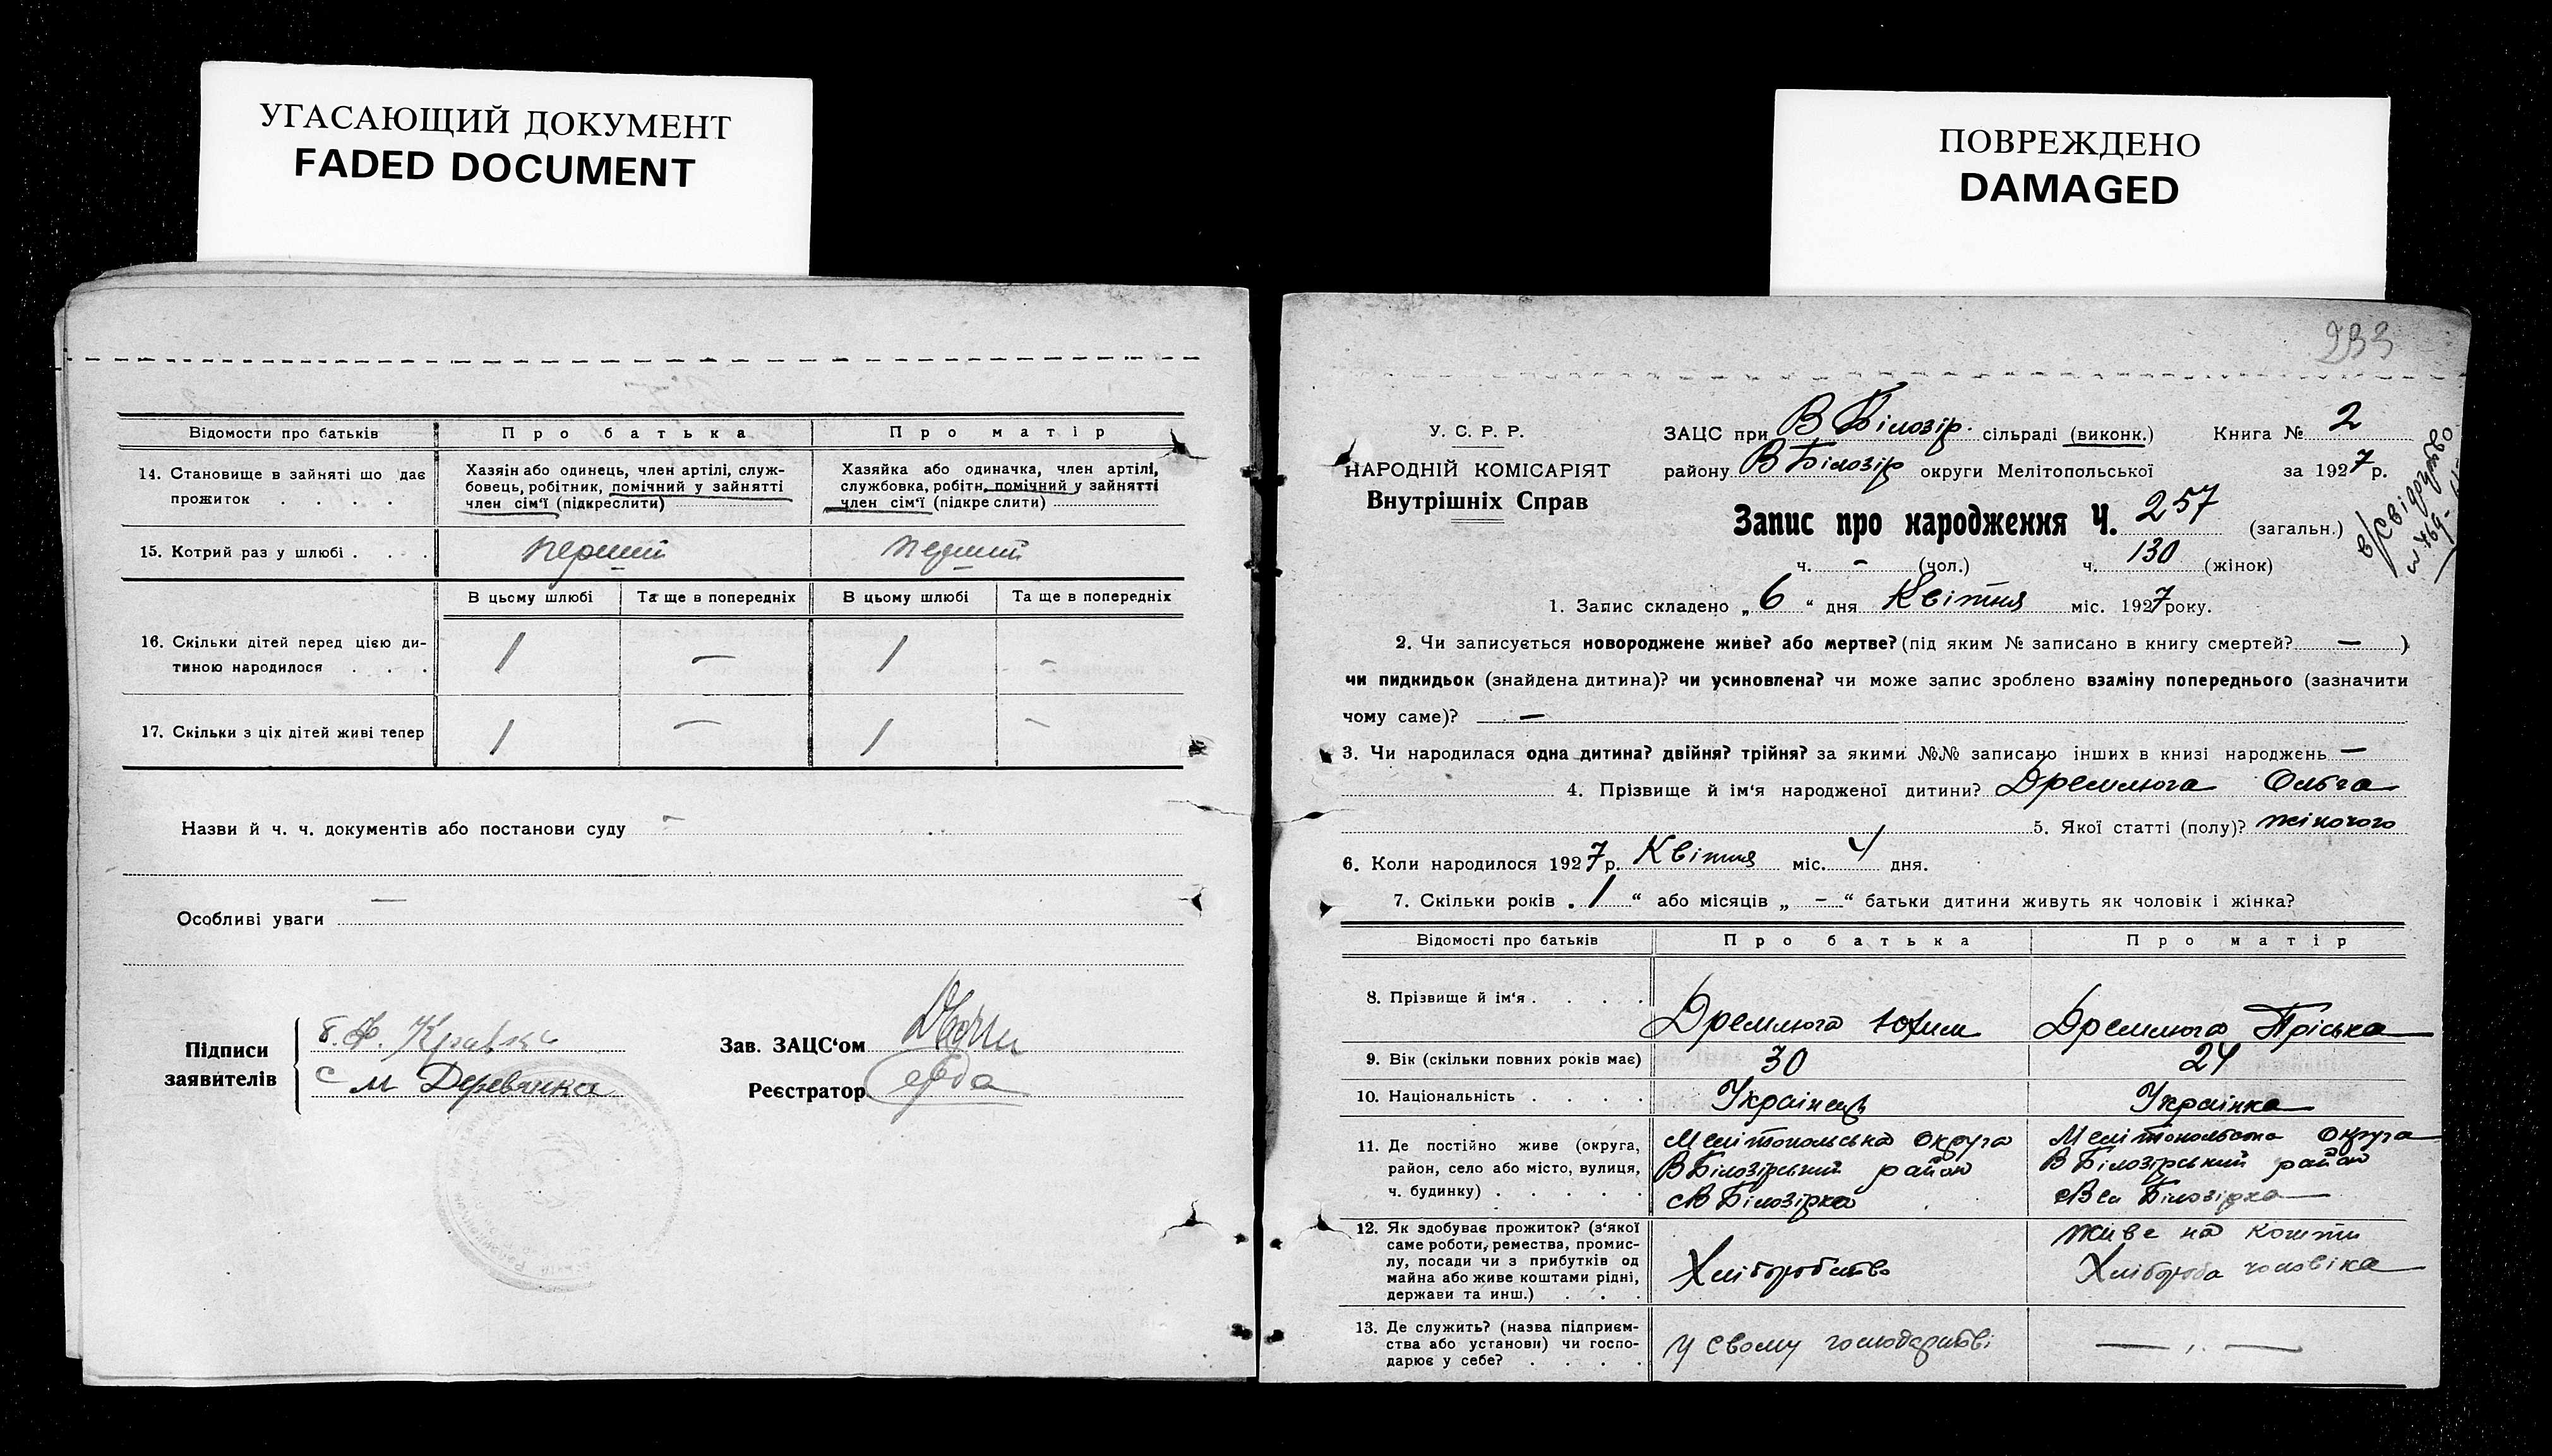 УГАСАЮЩИЙ ДОКУМЕНТ
FADED DOCUMENT
ПОВРЕЖДЕНО
DAMAGED
Відомости про батьків
Про батька
Про матір
14. Становище в зайняті що дає
прожиток . . . .
Хазяїн або одинець, член артілі, служ-
бовець, робітник, помічний у зайнятті
член сім‘ї (підкреслити)
Хазяйка або одиначка, член артілі,
службовка, робітн. помічний у зайнятті
член сім‘ї (підкреслити)
15. Котрий раз у шлюбі . . .
перший
перший
В цьому шлюбі
Та ще в попередніх
В цьому шлюбі
Та ще в попередніх
16. Скільки дітей перед цією ди-
тиною народилося . . .
1 — 1 -
17. Скільки з ціх дітей живі тепер
1 — 1 -
Назви й ч. ч. документів або постанови суду -
—
Особливі уваги
Підписи
заявителів
с м Деревянка
Зав. ЗАЦС‘ом
Реєстратор
233
У. С. Р. Р.
НАРОДНІЙ КОМІСАРІЯТ
Внутрішніх Справ
ЗАЦС при В Білозір. сільраді (виконк.) Книга № 2
району В Білозір округи Мелітопольської за 1927 р.
Запис про народження Ч. 257 (загальн.)
ч. - (чол.) ч. 130 (жінок)
1. Запис складено „ 6 “ дня Квітня міс. 1927 року.
2. Чи записується новороджене живе? або мертве? (під яким № записано в книгу смертей? — )
чи пидкидьок (знайдена дитина)? чи усиновлена? чи може запис зроблено взаміну попереднього (зазначити
чому саме)? —
3. Чи народилася одна дитина? двійня? трійня? за якими №№ записано інших в книзі народжень —
4. Прізвище й ім‘я народженої дитини? Дремлюга Ольга
5. Якої статті (полу)? жіночого
6. Коли народилось 1927 р. Квітня міс. 4 дня.
7. Скільки років „ 1 “ або місяців „ - “ батьки дитини живуть як чоловік і жінка?
Відомості про батьків
Про батька
Про матір
8. Прізвище й ім‘я . . . .
Дремлюга Юхим
Дремлюга Пріська
9. Вік (скільки повних років має)
30
24
10. Національність . . . .
Українець
Українка
11. Де постійно живе (округа,
район, село або місто, вулиця,
ч. будинку) . . . . .
Мелітопольська округа
В Білозірський район
с В Білозірка
Мелітопольська округа
В Білозірський район
Білозірка
12. Як здобуває прожиток? (з‘якої
саме роботи, ремества, промис-
лу, посади чи з прибутків од
майна або живе коштами рідні,
держави та инш.) . . .
Хліборобство
живе на кошти
Хлібороба чоловіка
13. Де служить? (назва підприєм-
ства або установи) чи госпо-
дарює у себе? . . . .
у свому господарстві